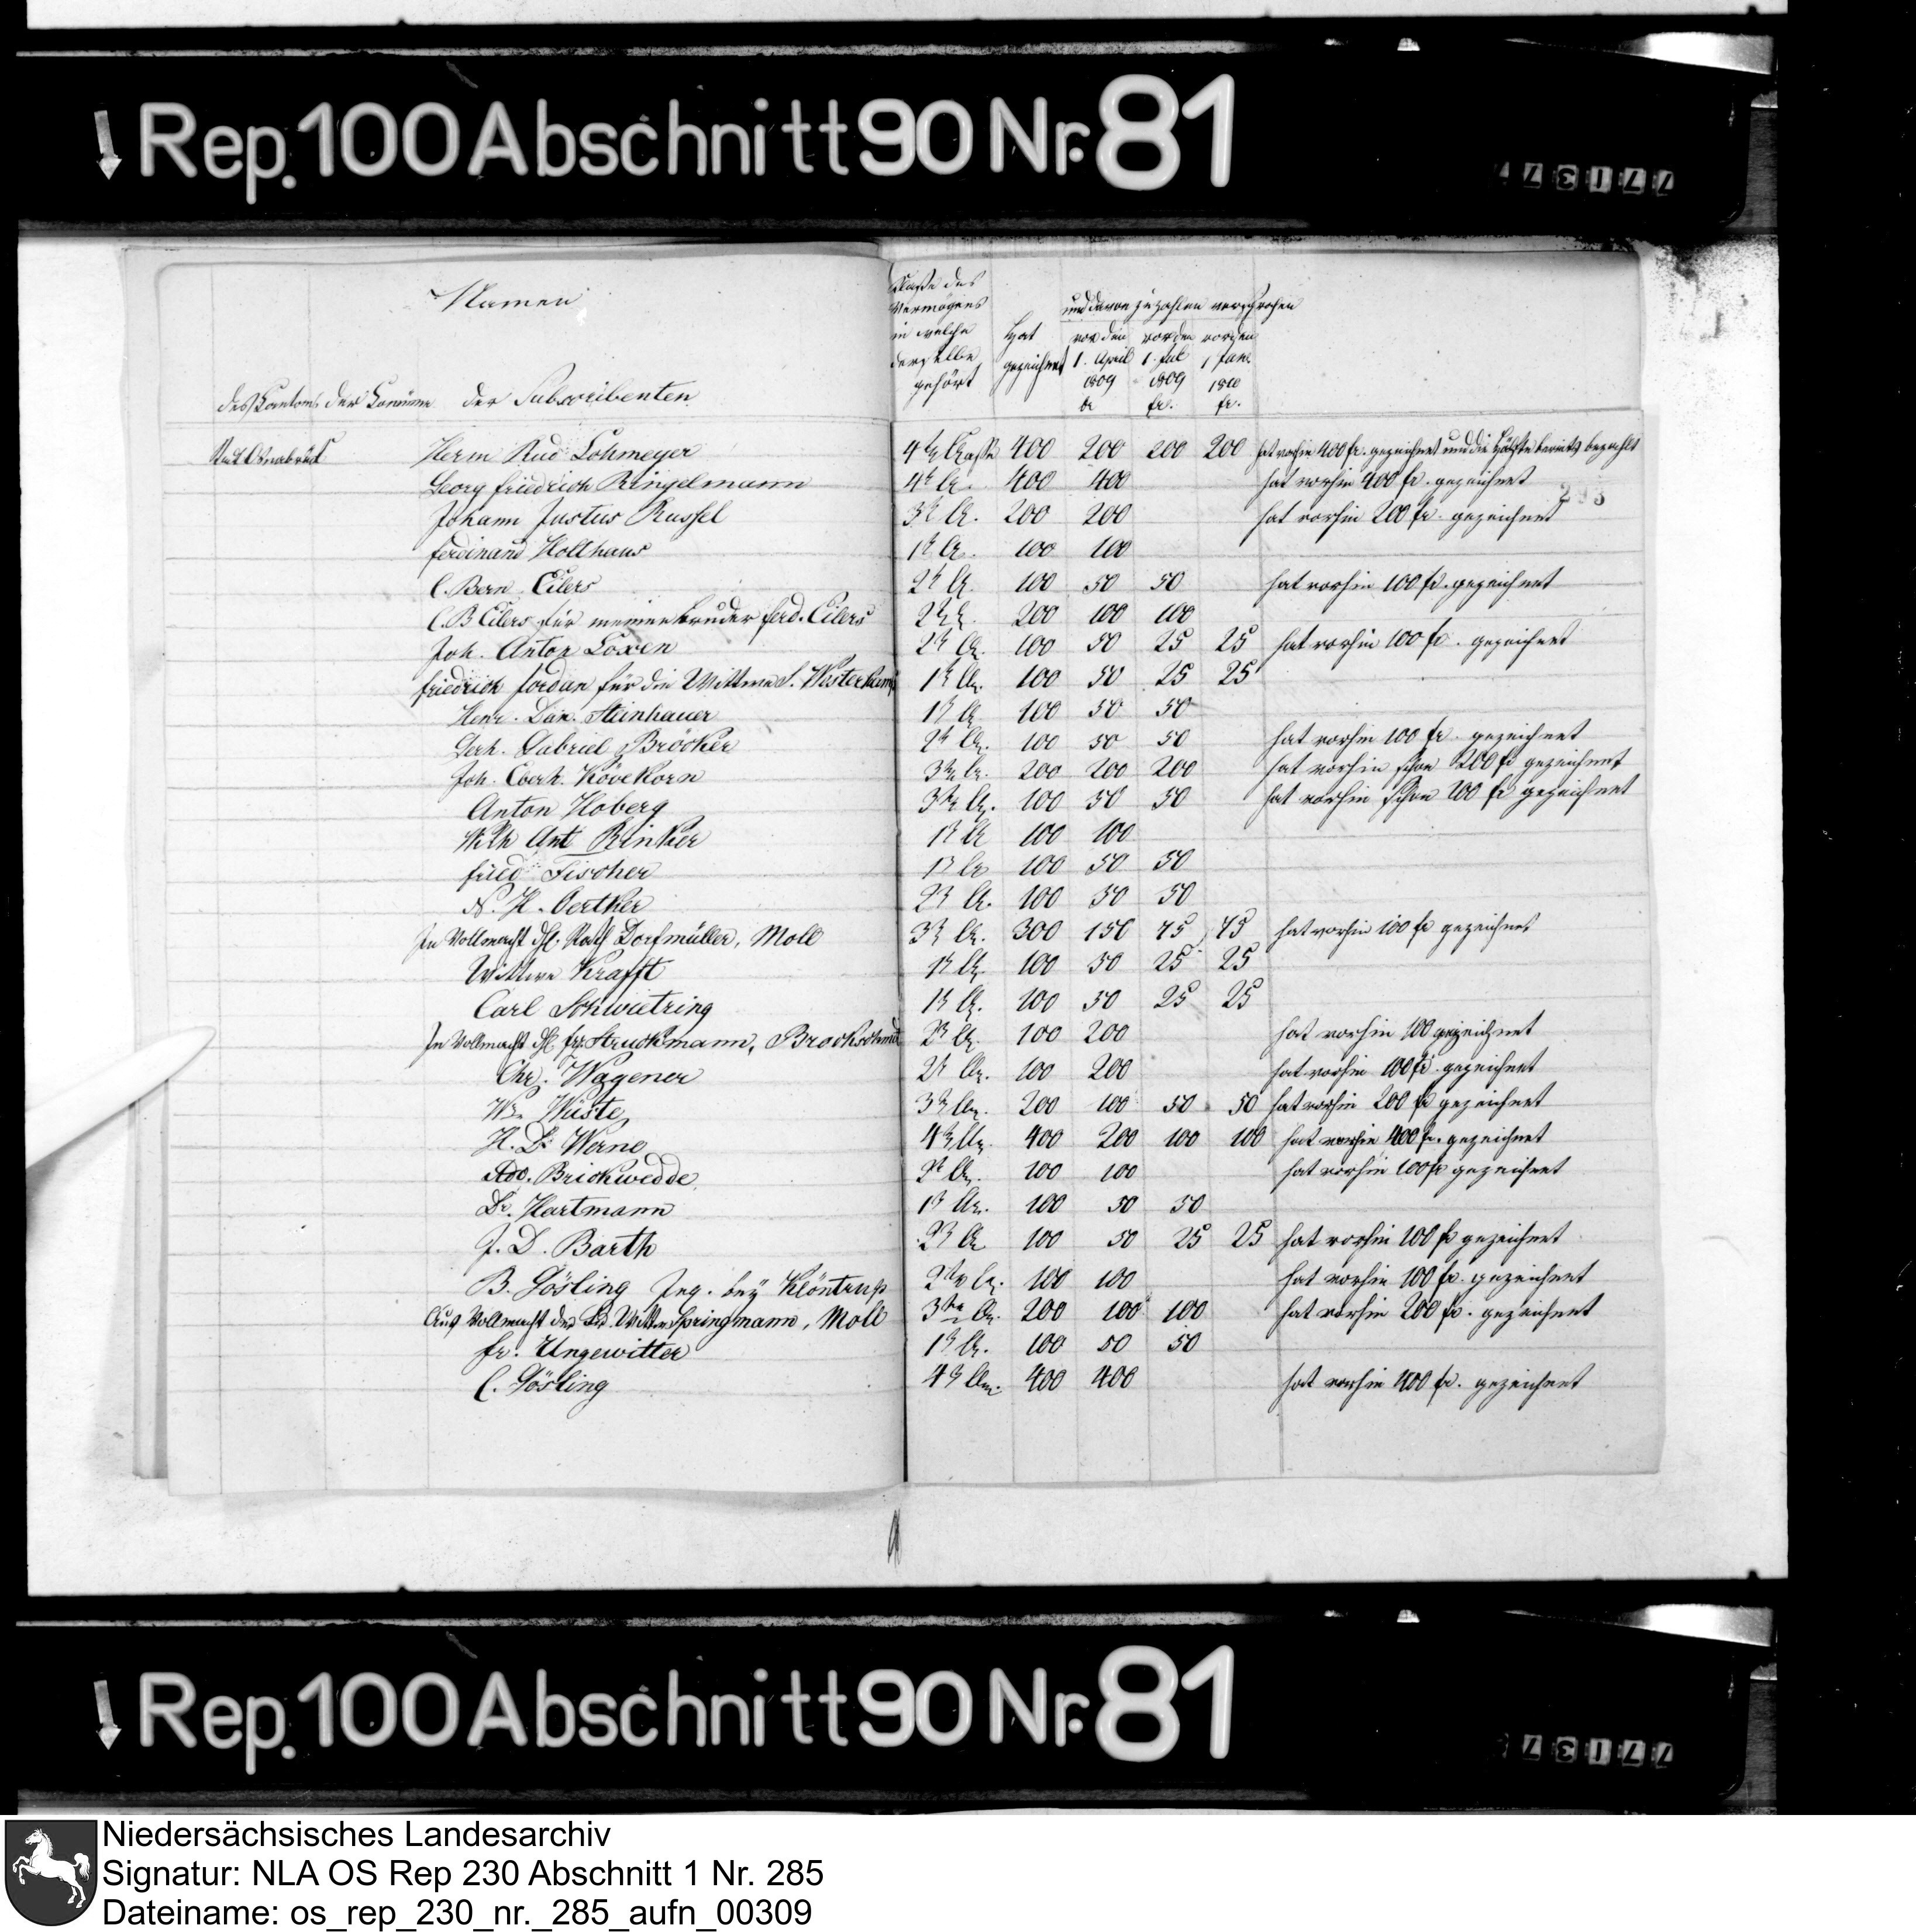 Rep. 100 Abschnitt 90 Nr. 81
Namen
des Kantons der Commüne der Subscribenten
Klasse des Vermögens in welche derselbe gehört
Hat gezeichnet
und davon zu zahlen versprochen
vor den 1. April 1809 fr.
vor den 1. Jul 1809 fr.
vor den 1 Jan. 1810 fr.
Stadt Osnabrück Herm Rud Lohmeyer 4te Classe 400 200 200 200 hat vorhin 400 fr. gezeichnet und die Hälfte bereits bezahlt
Georg Friedrich Ringelmann 4te Cl. 400 400 hat vorhin 400 fr. gezeichnet
Johann Justus Russel 3te Cl. 200 200 hat vorhin 200 fr. gezeichnet
Ferdinand Holthaus 1te Cl. 100 100
C. Bern. Eilers 2te Cl. 100 50 50 hat vorhin 100 fr. gezeichnet
C. B Eilers für meinen bruder Ferd. Eilers 2te Cl. 200 100 100
Joh. Anton Loxen 2te Cl. 100 50 25 25 hat vorhin 100 fr. gezeichnet
Friedrich Jordan für die Wittwe S. Westerkamp 1te Cl. 100 50 25 25
Henr. Dan. Steinhauer 1te Cl. 100 50 50
Gerh. Gabriel Bröcker 2te Cl. 100 50 50 hat vorhin 100 fr. gezeichnet
Joh. Eberh. Kövekorn 3te Cl. 200 200 200 hat vorhin schon 200 fr gezeichnet
Anton Hoberg 3te Cl. 100 50 50 hat vorhin schon 200 fr gezeichnet
Wilh Ant Rinker 1te Cl 100 100
Fried Fischer 1te Cl 100 50 50
N. H. Oertker 2te Cl. 100 50 50
In Vollmacht H. Dorfmüller, Moll 3te Cl. 300 150 75 75 hat vorhin 100 fr gezeichnet
Wittwe Krafft 1te Cl. 100 50 25 25
Carl Schwietring 1te Cl. 100 50 25 25
In Vollmacht H. Fr. Struckmann, Brockschmid 2te Cl. 100 200 hat vorhin 100 gezeichnet
Chr. Wagener 2te Cl. 100 200 hat vorhin 100 fr. gezeichnet
Wm Wüste 3te Cl. 200 100 50 50 hat vorhin 200 fr gezeichnet
H. D. Werne 4te Cl. 400 200 100 100 hat vorhin 400 fr. gezeichnet
Ad. Brickwedde 2te Cl. 100 100 hat vorhin 100 fr gezeichnet
Dr. Hartmann 1te Cl. 100 50 50
J. D. Barth 2te Cl 100 50 25 25 hat vorhin 100 fr gezeichnet
B. Gösling Jng. bey Klöntrup 2te Cl. 100 100 hat vorhin 100 fr. gezeichnet
Aus Vollmacht der Wittwe Springmann, Moll 3te Cl. 200 100 100 hat vorhin 200 fr. gezeichnet
Fr. Ungewitter 1te Cl. 100 50 50
C. Gösling 4te Cl. 400 400 hat vorhin 400 fr. gezeichnet
Rep. 100 Abschnitt 90 Nr. 81
Niedersächsisches Landesarchiv
Signatur: NLA OS Rep 230 Abschnitt 1 Nr. 285
Dateiname: os_rep_230_nr._285_aufn_00309